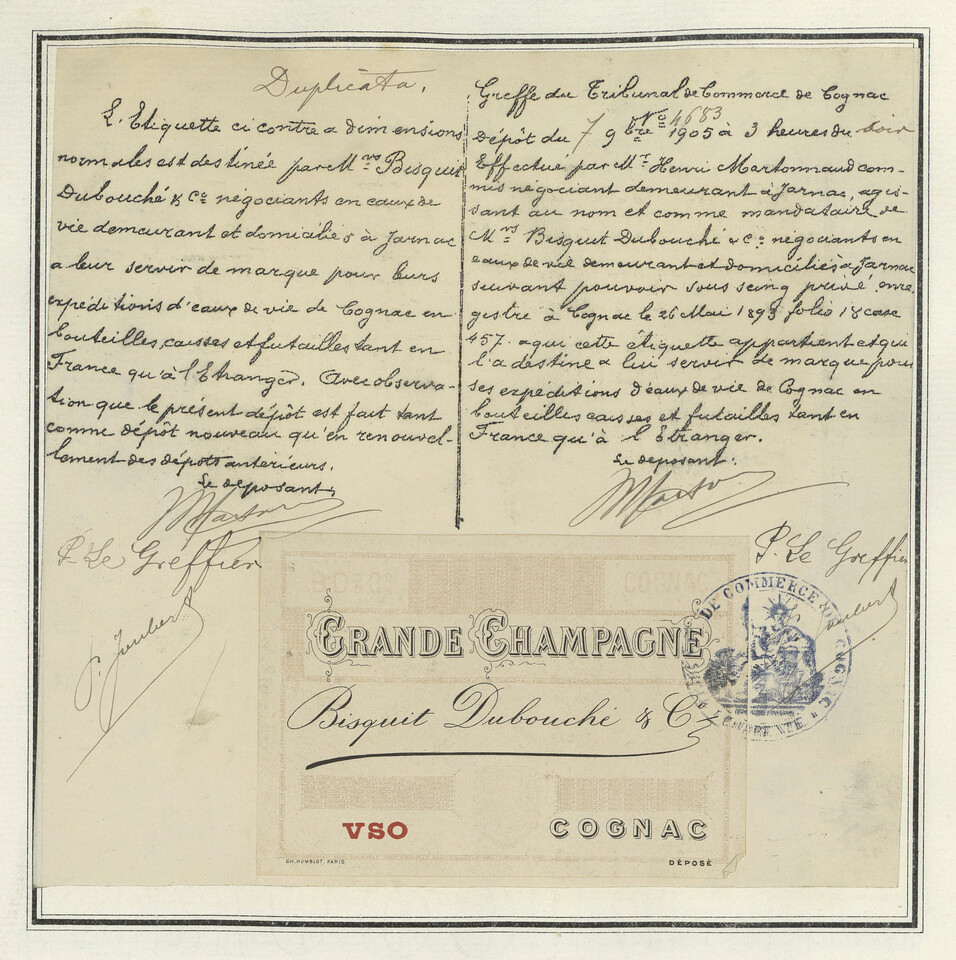 Duplicata.
L'Etiquette ci contre a dimensions
normales est destinée par Mrs Bisquit
Dubouché & Cie négociants en eaux de
vie demeurant et domiciliés à Jarnac
a leur servir de marque pour leurs
expéditions d'eaux de vie de Cognac en
bouteilles, caisses et futailles tant en
France qu'à l'Etranger. Avec observa-
tion que le présent dépôt est fait tant
comme dépôt nouveau qu'en renouvel-
lement des dépôts antérieurs.
Le deposant,
P. Le Greffier
P. Joubert
Greffe du Tribunal de Commerce de Cognac
No 4683
Dépôt du 7 9bre 1905 à 3 heures du soir
Effectué par Mr Henri Martonnaud com-
mis négociant demeurant à Jarnac, agis-
sant au nom et comme mandataire de
Mrs Bisquit Dubouché & Cie négociants en
eaux de vie demeurant et domiciliés à Jarnac
suivant pouvoir sous seing privé, enre
gistré à Cognac le 26 Mai 1893 folio 18 case
457. a qui cette étiquette appartient et qui
l'a destine a lui servir de marque pour
ses expéditions d'eaux de vie de Cognac en
bouteilles caisses et futailles tant en
France qu'à l'Etranger.
Le deposant:
P. Le Greffier
Joubert
GRANDE CHAMPAGNE
Bisquit Dubouché & Co
VSO
COGNAC
CH. HUMBLOT, PARIS
DÉPOSÉ
DE COMMERCE DE COGNAC
CHARENTE